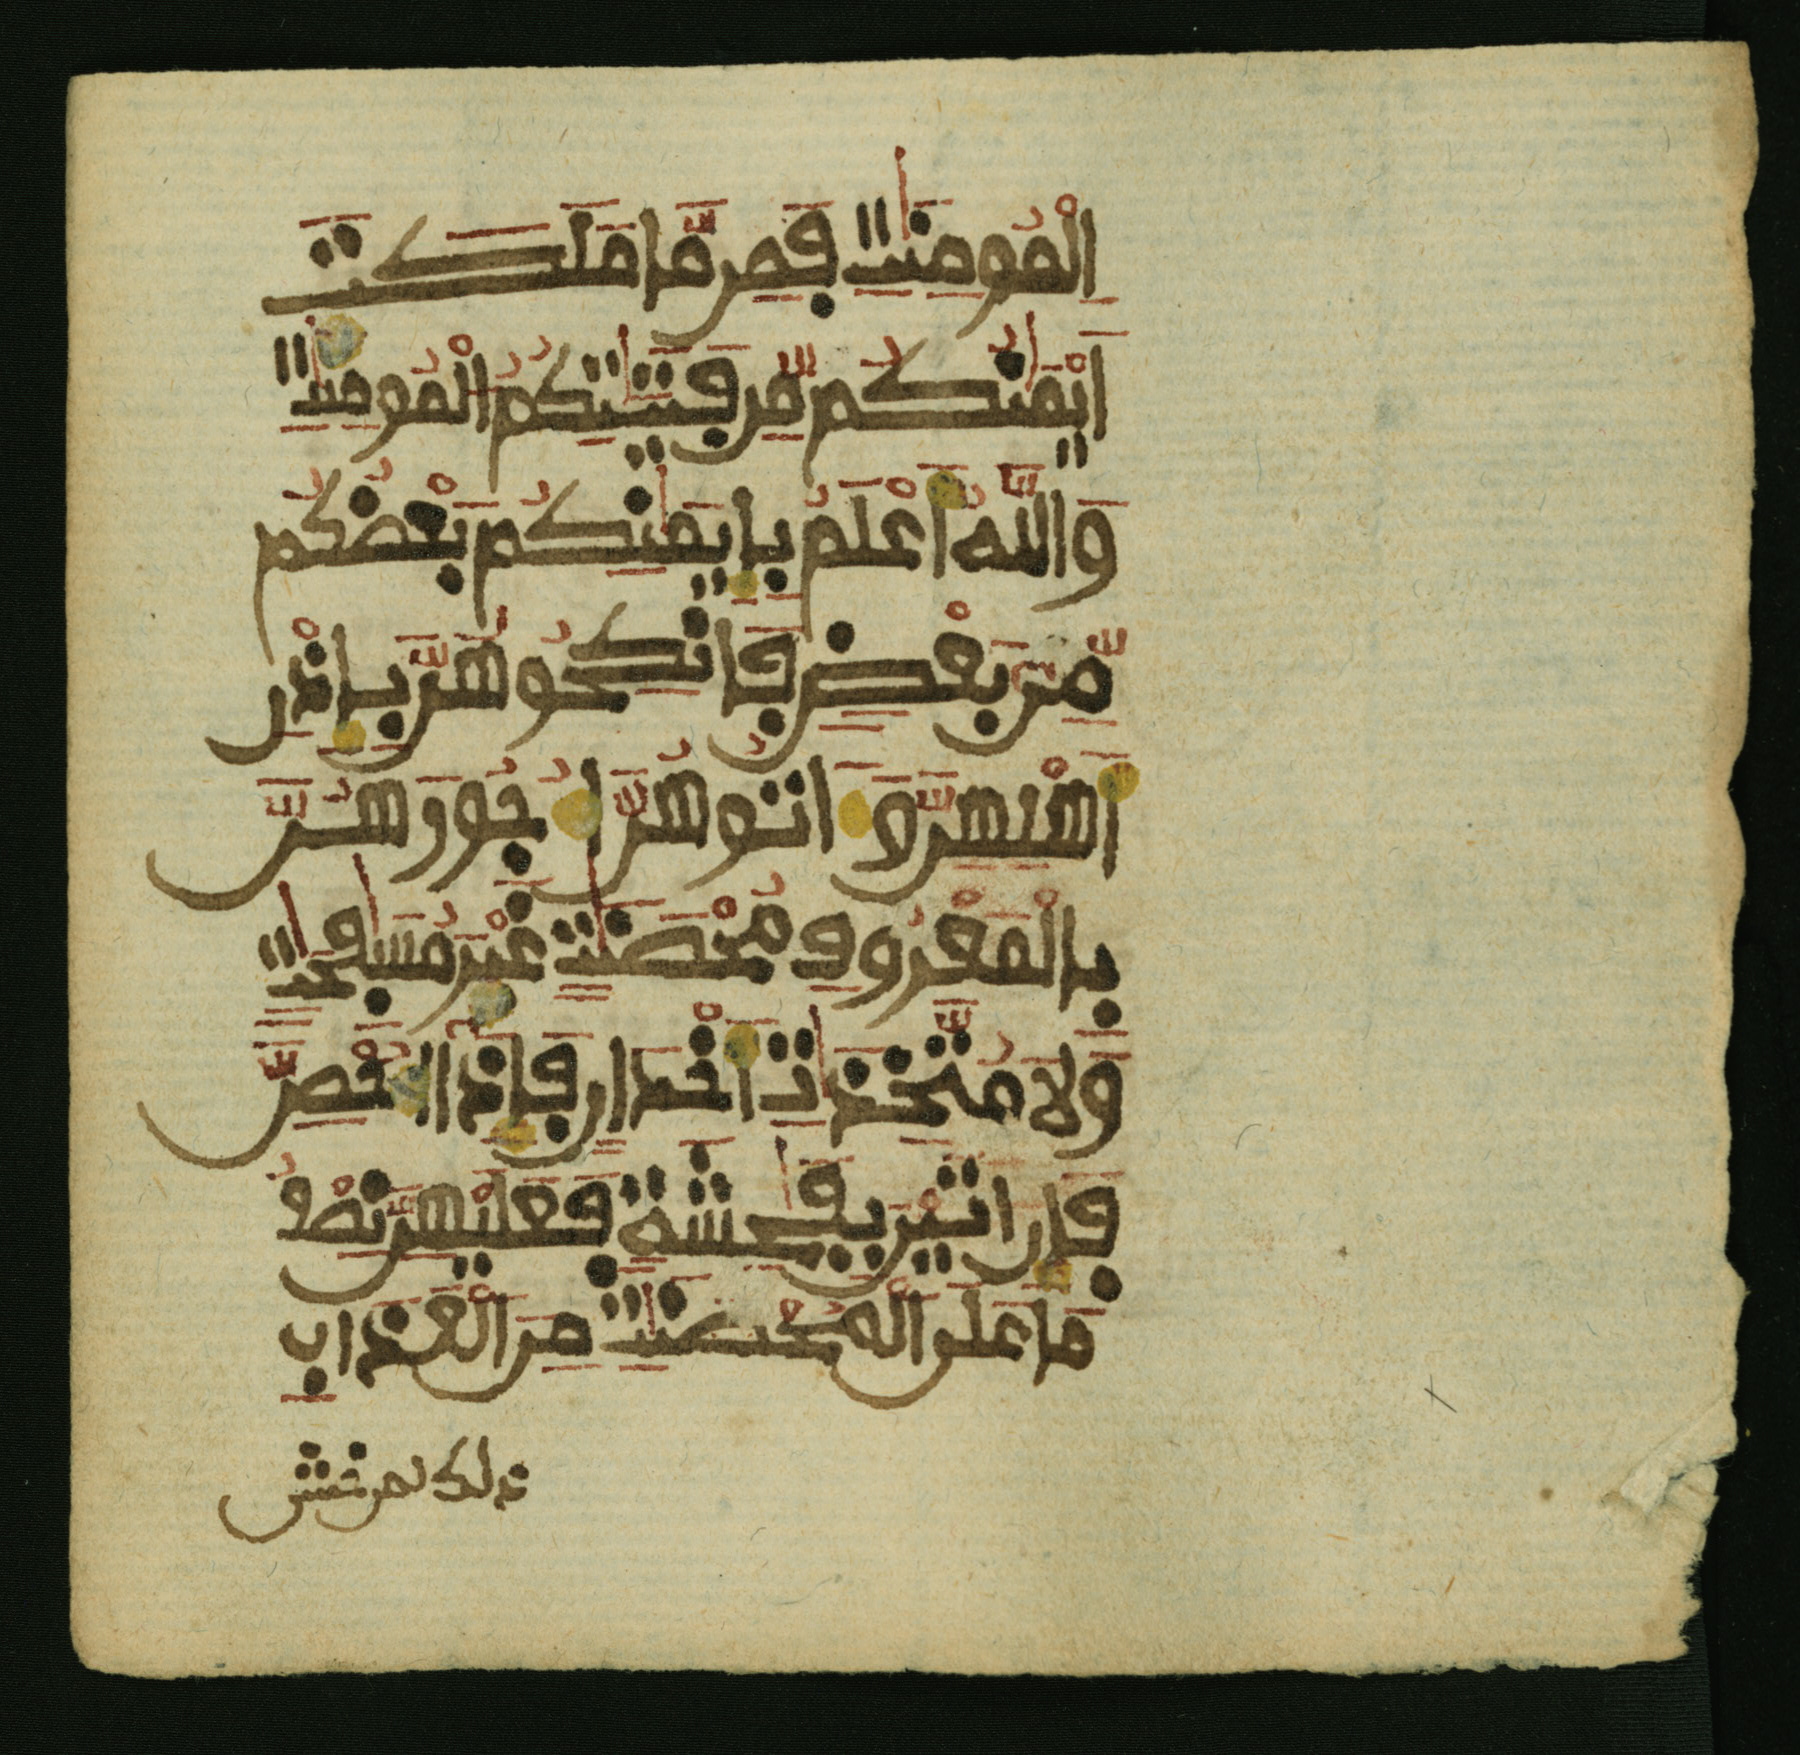 الْمُومِنَٰتِ فَمِن مَّا مَلَكَتَ
اَيْمَٰنُكُم مِّن فَتَيَٰتِكُمُ الْمُومِنَٰتِ
وَاللَّهُ أَعْلَمُ بِإِيمَٰنِكُم بَعْضُكُم
مِّنۢ بَعْضٍ فَانكِحُوهُنَّ بِإِذْنِ
أَهْلِهِنَّ وَءَاتُوهُنَّ أُجُورَهُنَّ
بِالْمَعْرُوفِ مُحْصَنَٰتٍ غَيْرَ مُسَٰفِحَٰتٍ
وَلَا مُتَّخِذَٰتِ أَخْدَانٍ فَإِذَا أُحْصِنَّ
فَإِنَ اتَيْنَ بِفَٰحِشَةٍ فَعَلَيْهِنَّ نِصْفُ
مَا عَلَى الْمُحْصَنَٰتِ مِنَ الْعَذَابِ
ذلك لمن خشى